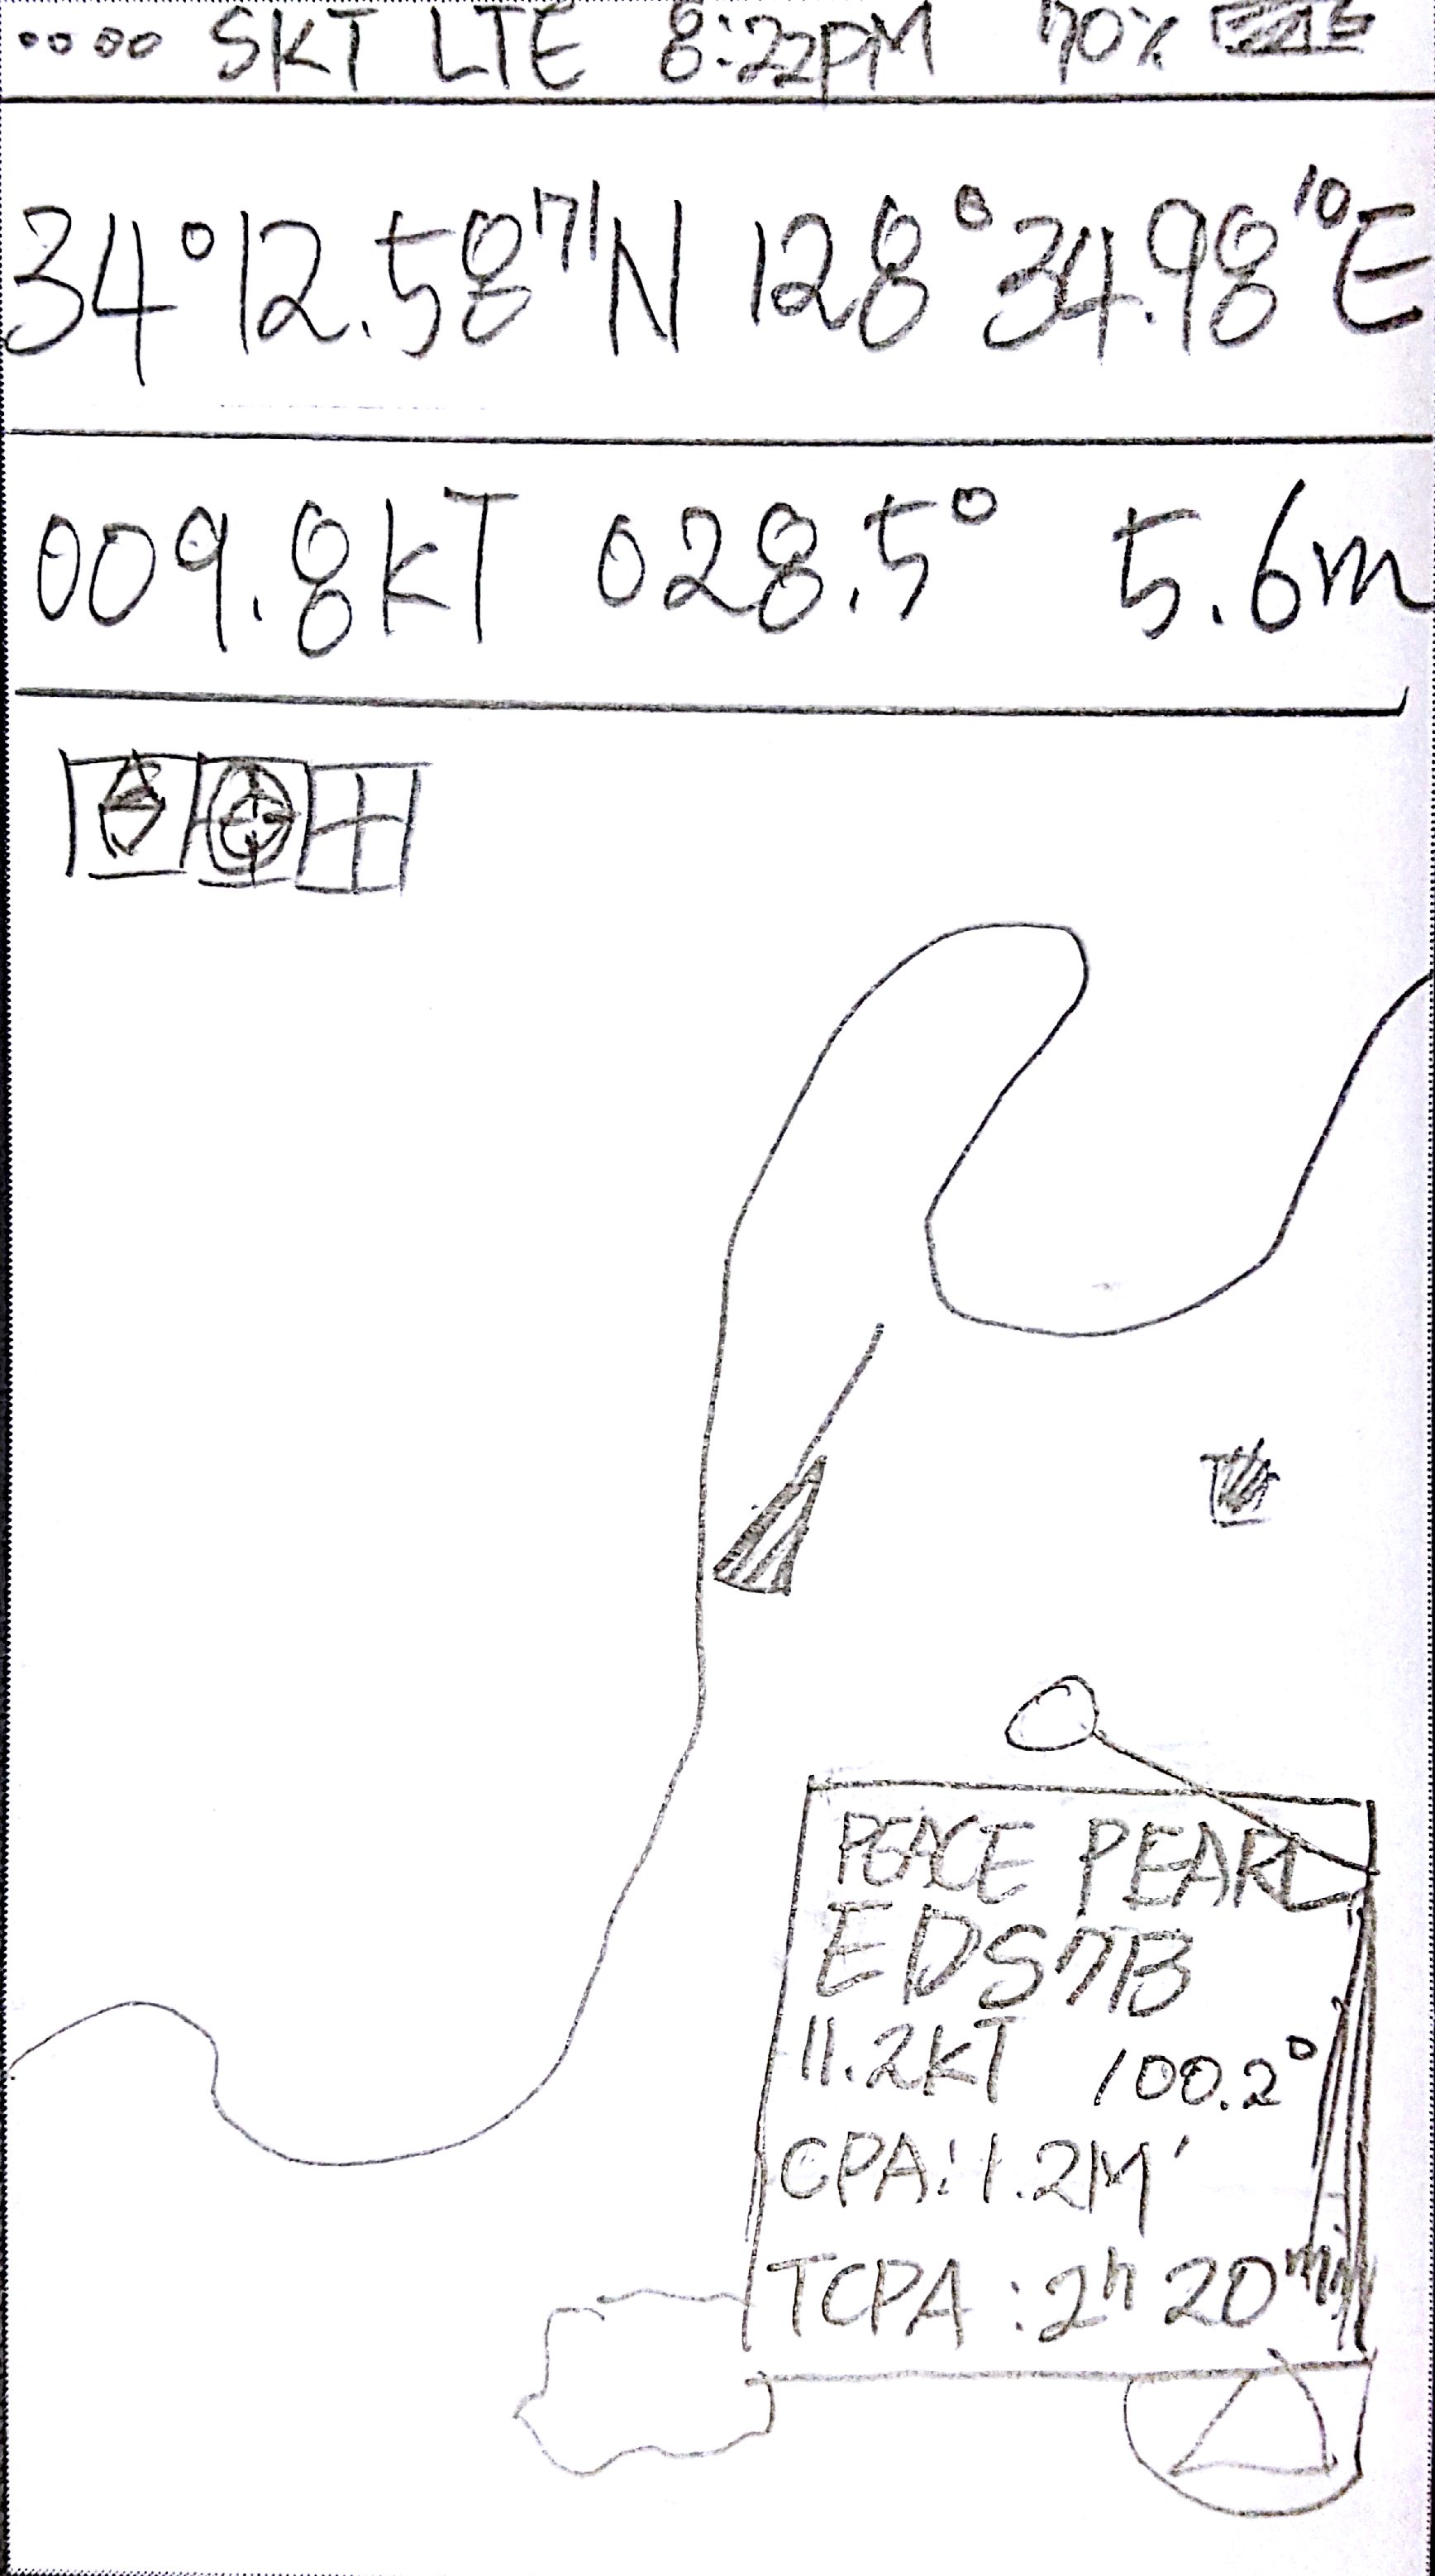 SKT LTE 8:22PM 70%
34°12.5871N 128°34.9810E
009.8kT 028.5° 5.6m
PEACE PEARL
EDS7B
11.2kT 100.2°
CPA:1.2M'
TCPA:2h 20min